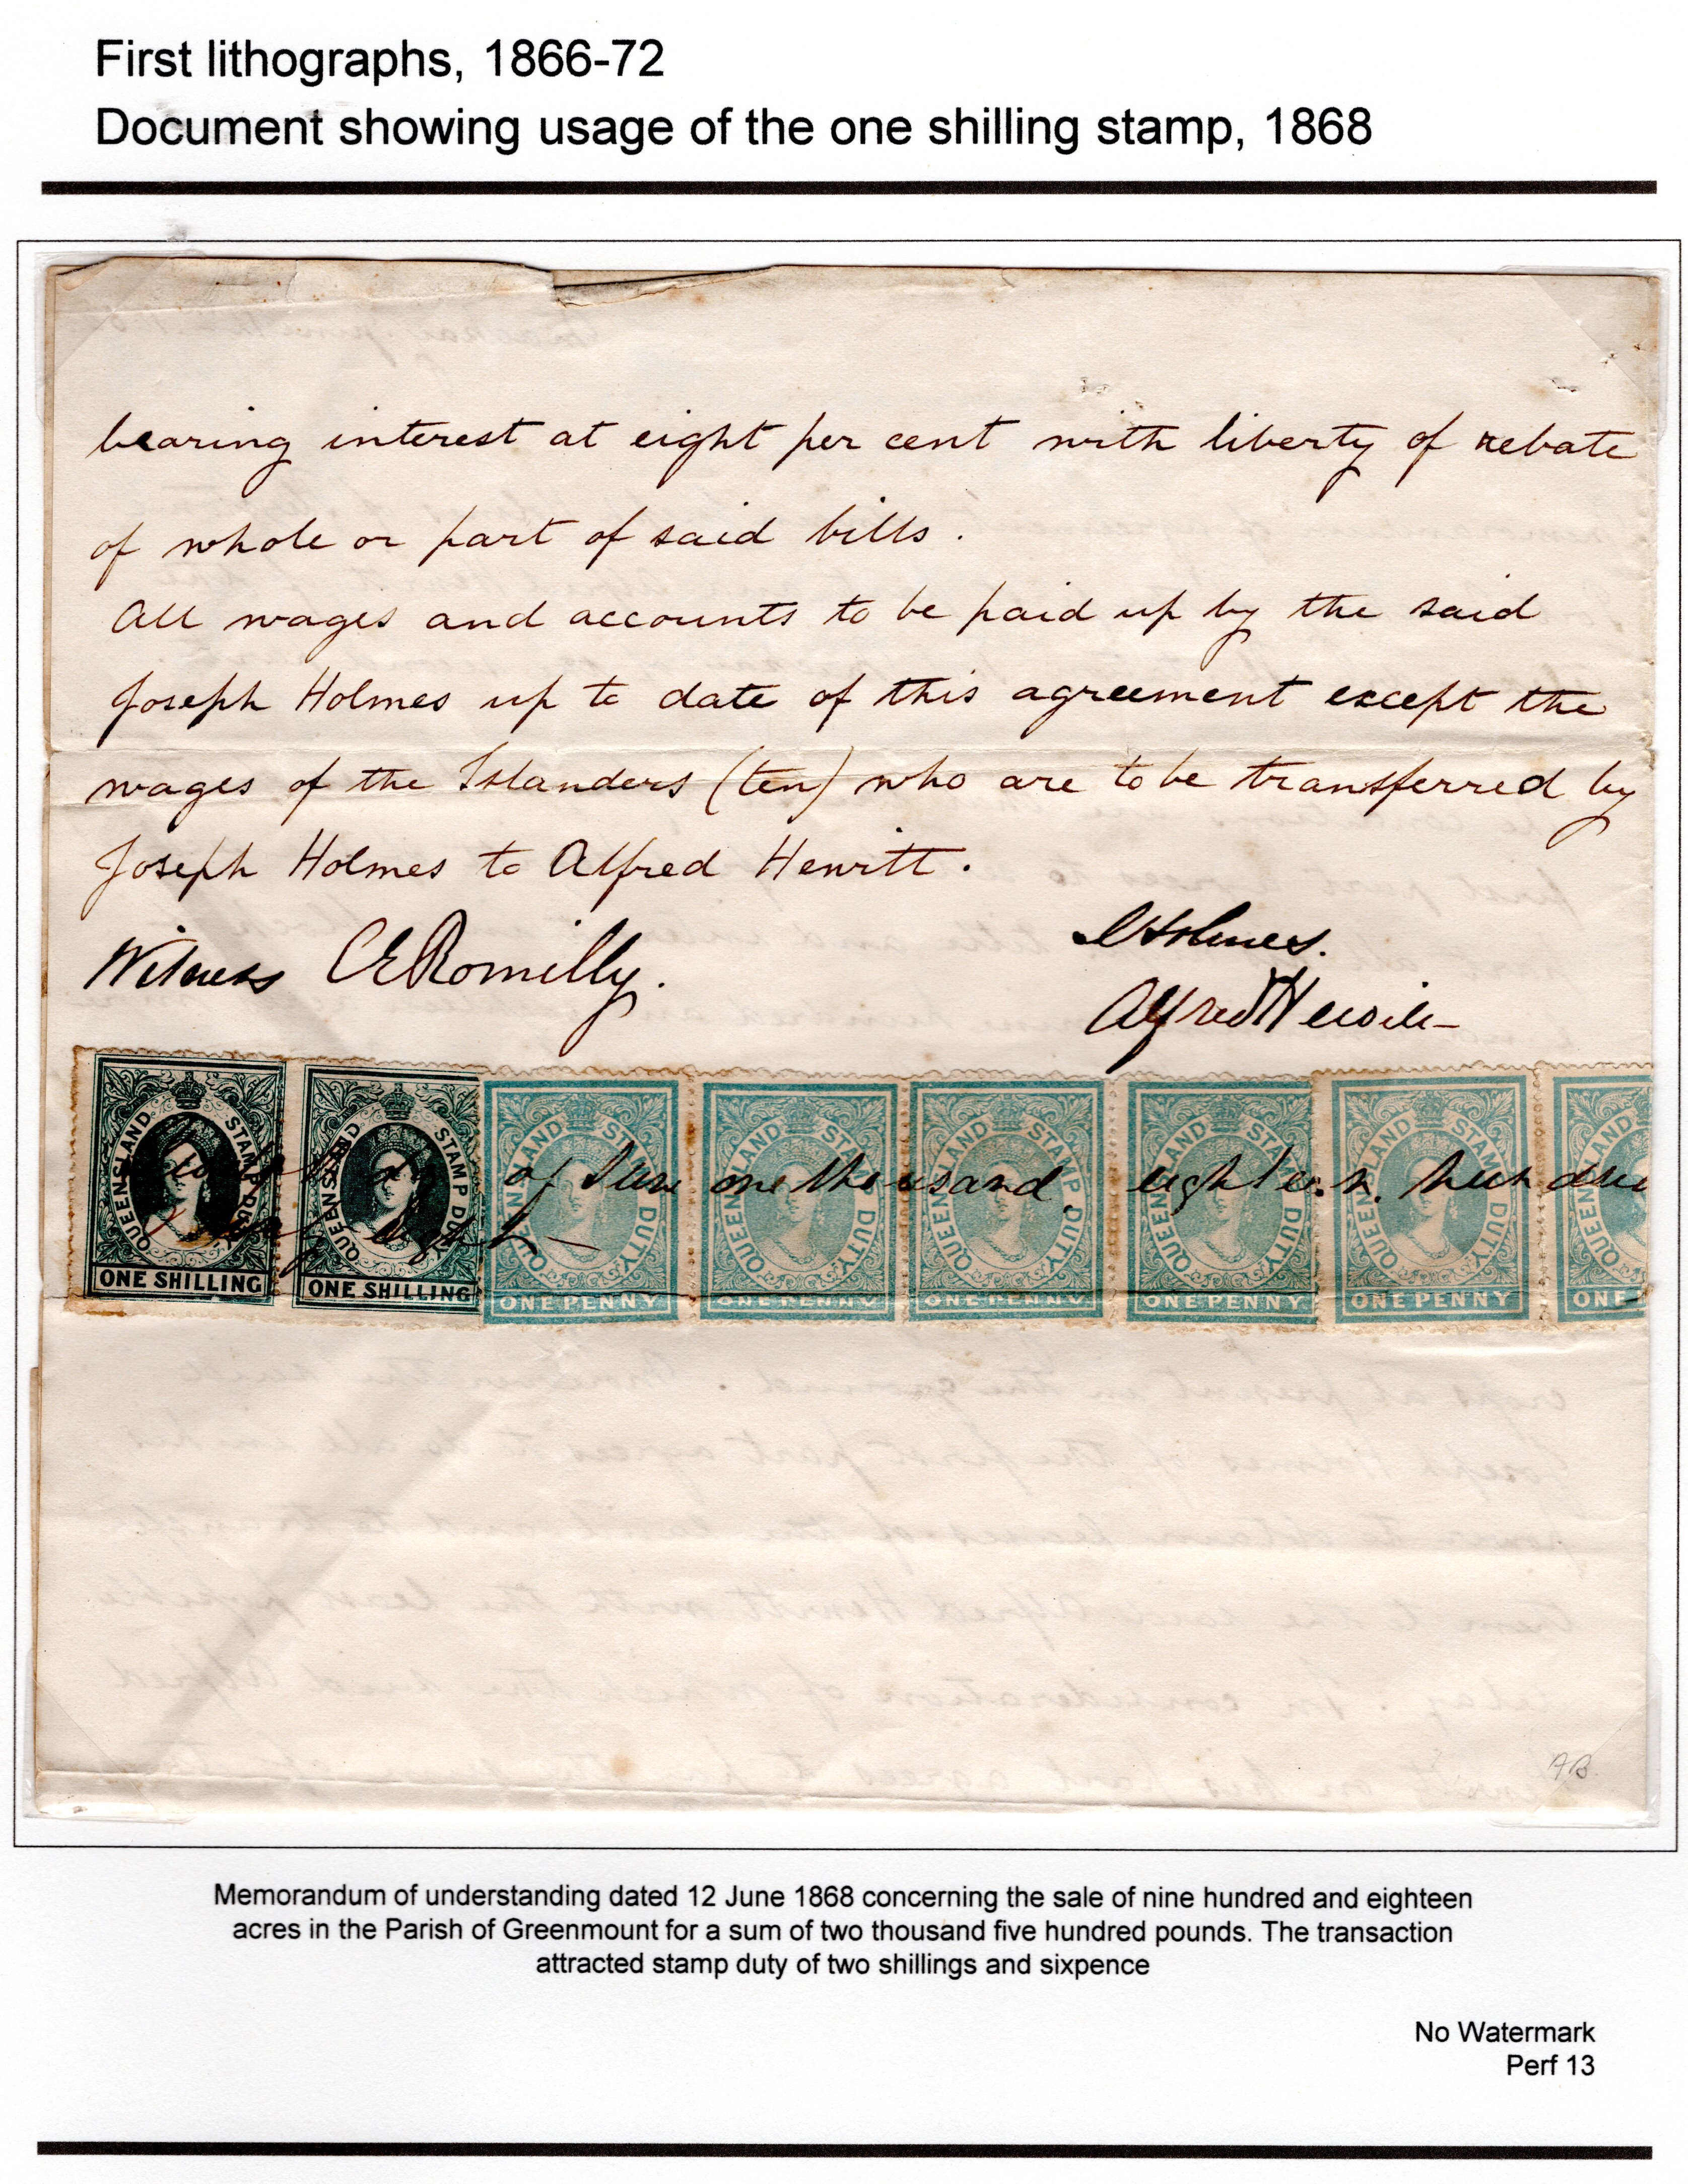 First lithographs, 1866-72
Document showing usage of the one shilling stamp, 1868
bearing interest at eight per cent with liberty of rebate
of whole or part of said bills.
All wages and accounts to be paid up by the said
Joseph Holmes up to date of this agreement except the
wages of the Islanders (ten) who are to be transferred by
Joseph Holmes to Alfred Hewitt.
Witness CERomilly.
JHolmes.
Alfred Hewitt
QUEENSLAND STAMP DUTY
ONE SHILLING
QUEENSLAND STAMP DUTY
ONE SHILLING
QUEENSLAND STAMP DUTY
ONE PENNY
QUEENSLAND STAMP DUTY
ONE PENNY
QUEENSLAND STAMP DUTY
ONE PENNY
QUEENSLAND STAMP DUTY
ONE PENNY
QUEENSLAND STAMP DUTY
ONE PENNY
QUEENSLAND
ONE
day of June one thousand eighteen hundred
eight
AB.
Memorandum of understanding dated 12 June 1868 concerning the sale of nine hundred and eighteen
acres in the Parish of Greenmount for a sum of two thousand five hundred pounds. The transaction
attracted stamp duty of two shillings and sixpence
No Watermark
Perf 13